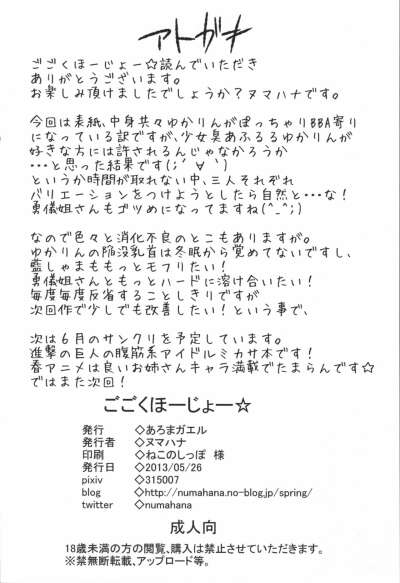 アトガキ
ごごくほーじょー☆読んでいただき
ありがとうございます。
お楽しみ頂けましたでしょうか？ヌマハナです。
今回は表紙、中身共々ゆかりんがぽっちゃりBBA寄り
になっている訳ですが、少女臭あふるるゆかりんが
好きな方には許されるんじゃなかろうか
…と思った結果です(;´∀｀)
というか時間が取れない中、三人それぞれ
バリエーションをつけようとしたら自然と…な！
勇儀姐さんもゴツめになってますね(^_^;)
なので色々と消化不良のとこもありますが。
ゆかりんの陥没乳首は冬眠から覚めてないですし、
藍しゃまももっとモフりたい！
勇儀姐さんともっとハードに溶け合いたい！
毎度毎度反省することしきりですが
次回作で少しでも改善したい！という事で、
次は６月のサンクリを予定しています。
進撃の巨人の腹筋系アイドルミカサ本です！
春アニメは良いお姉さんキャラ満載でたまらんです☆
ではまた次回！
ごごくほーじょー☆
発行 ◇あろまガエル
発行者 ◇ヌマハナ
印刷 ◇ねこのしっぽ 様
発行日 ◇2013/05/26
pixiv ◇315007
blog ◇http://numahana.no-blog.jp/spring/
twitter ◇numahana
成人向
18歳未満の方の閲覧、購入は禁止させていただきます。
※禁無断転載、アップロード等。